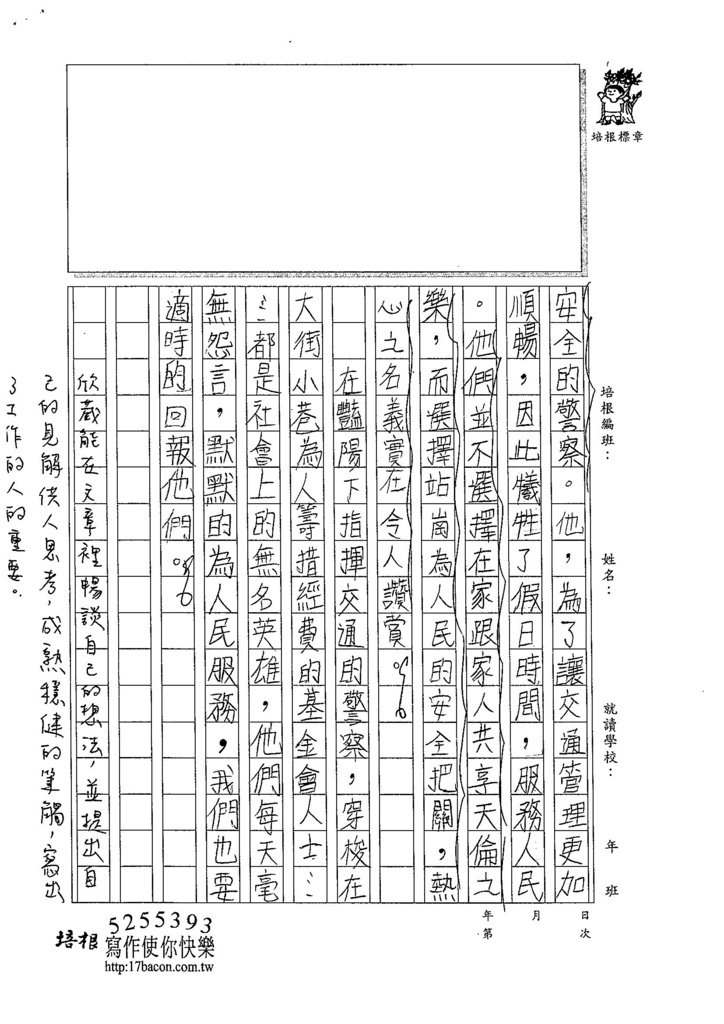 培根標章
培根編班：
姓名：
就讀學校：
年
班
月
日
年第
次
安全的警察。他，為了讓交通管理更加
順暢，因此犧牲了假日時間，服務人民
。他們並不選擇在家跟家人共享天倫之
樂，而選擇站崗為人民的安全把關，熱
心之名義實在令人讚賞。
在豔陽下指揮交通的警察，穿梭在
大街小巷為人籌措經費的基金會人士…
…都是社會上的無名英雄，他們每天毫
無怨言，默默的為人民服務，我們也要
適時的回報他們。
欣葳能在文章裡暢談自己的想法，並提出自
己的見解供人思考，成熟穩健的筆觸，寫出
了工作的人的重要。
5255393
培根 寫作使你快樂
http:17bacon.com.tw